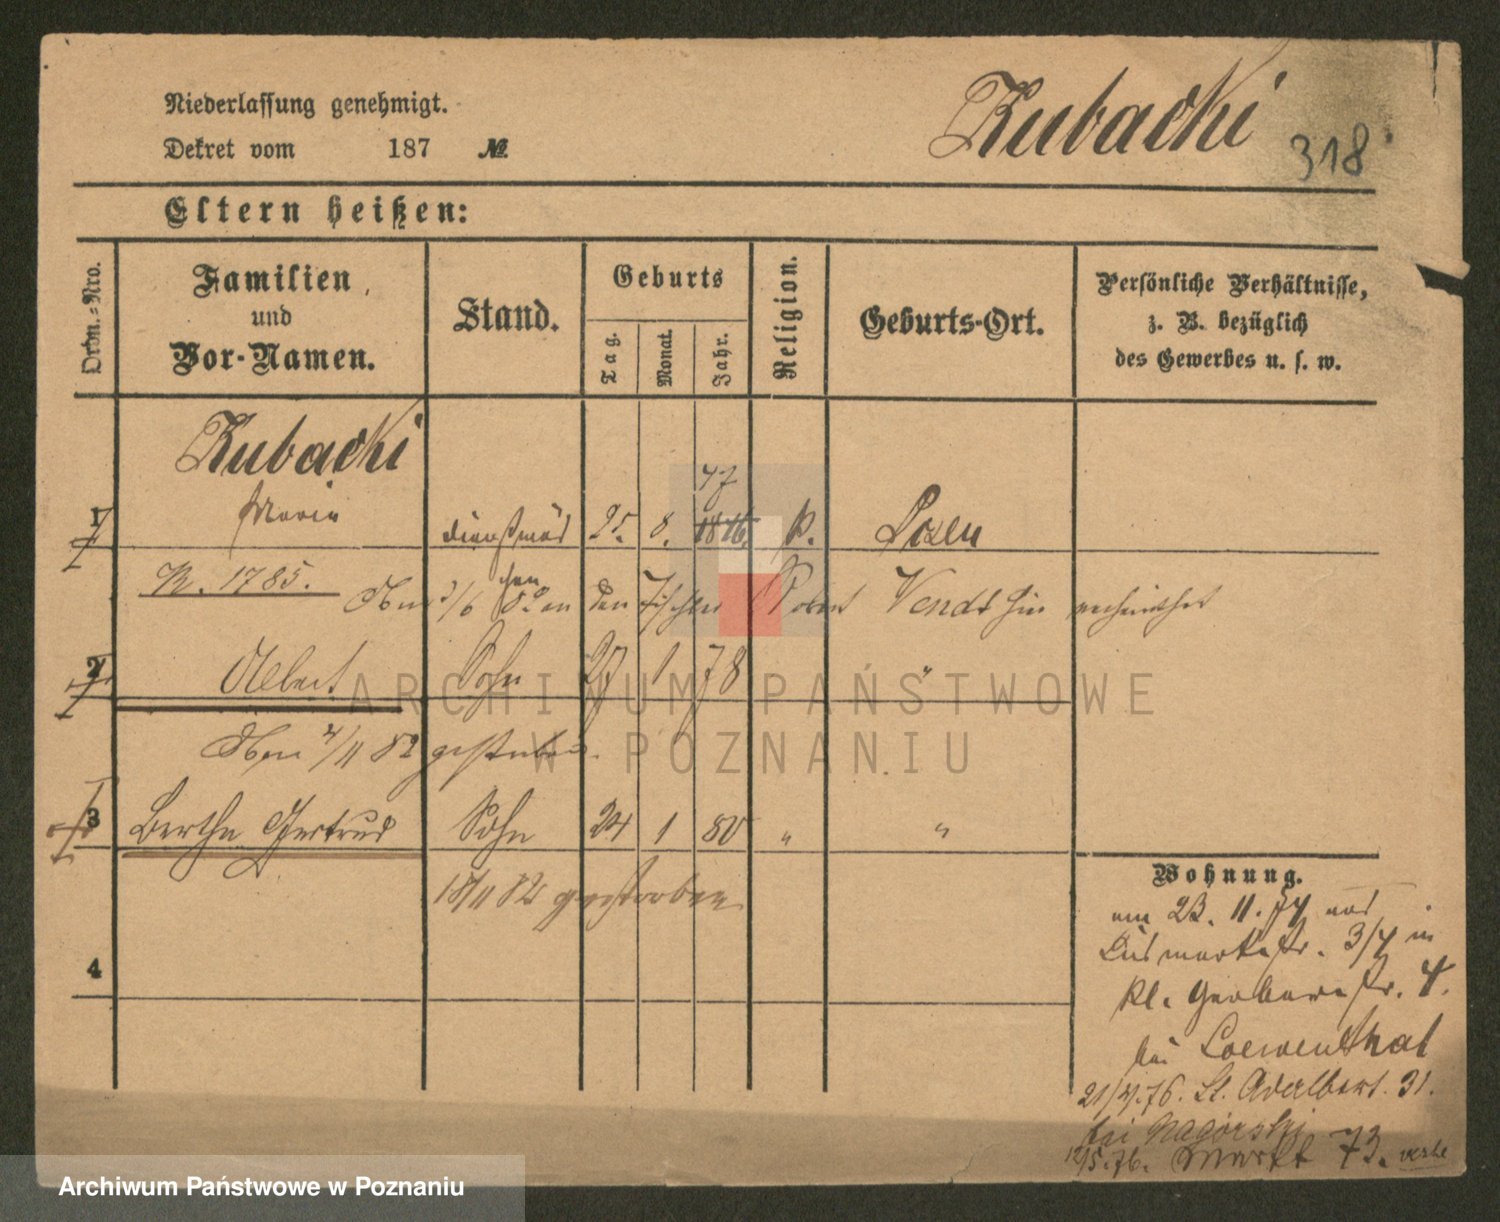 Niederlassung genehmigt.
Dekret vom 187 №
Kubacki
318
Eltern heißen:
Ordn.-Nro.
Familien und Vor-Namen.
Stand.
Geburts
Tag.
Monat.
Jahr.
Religion.
Geburts-Ort.
Persönliche Verhältnisse, z. B. bezüglich des Gewerbes u. s. w.
Kubacki
47
1 Maria 25. 8. 1846. k. Posen
R. 1785.
den Fischler Robert
2 Albert Sohn 27 1 78 "
4/11 82 gestorben.
3 Bertha Gertrud Sohn 24 1 80 " "
18/11 82 gestorben
4
Wohnung.
am 23. 11. 74 von
3/4 in
kl. Gerberstr. 4.
bei Loewenthal
21/4.76. St. Adalbert. 31.
bei Nagórski
12/5.76. Markt 73.
ARCHIWUM PAŃSTWOWE
W POZNANIU
Archiwum Państwowe w Poznaniu